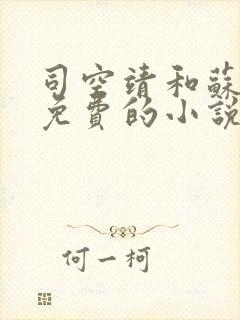 司空靖和蘇
免費的小說
何一柯